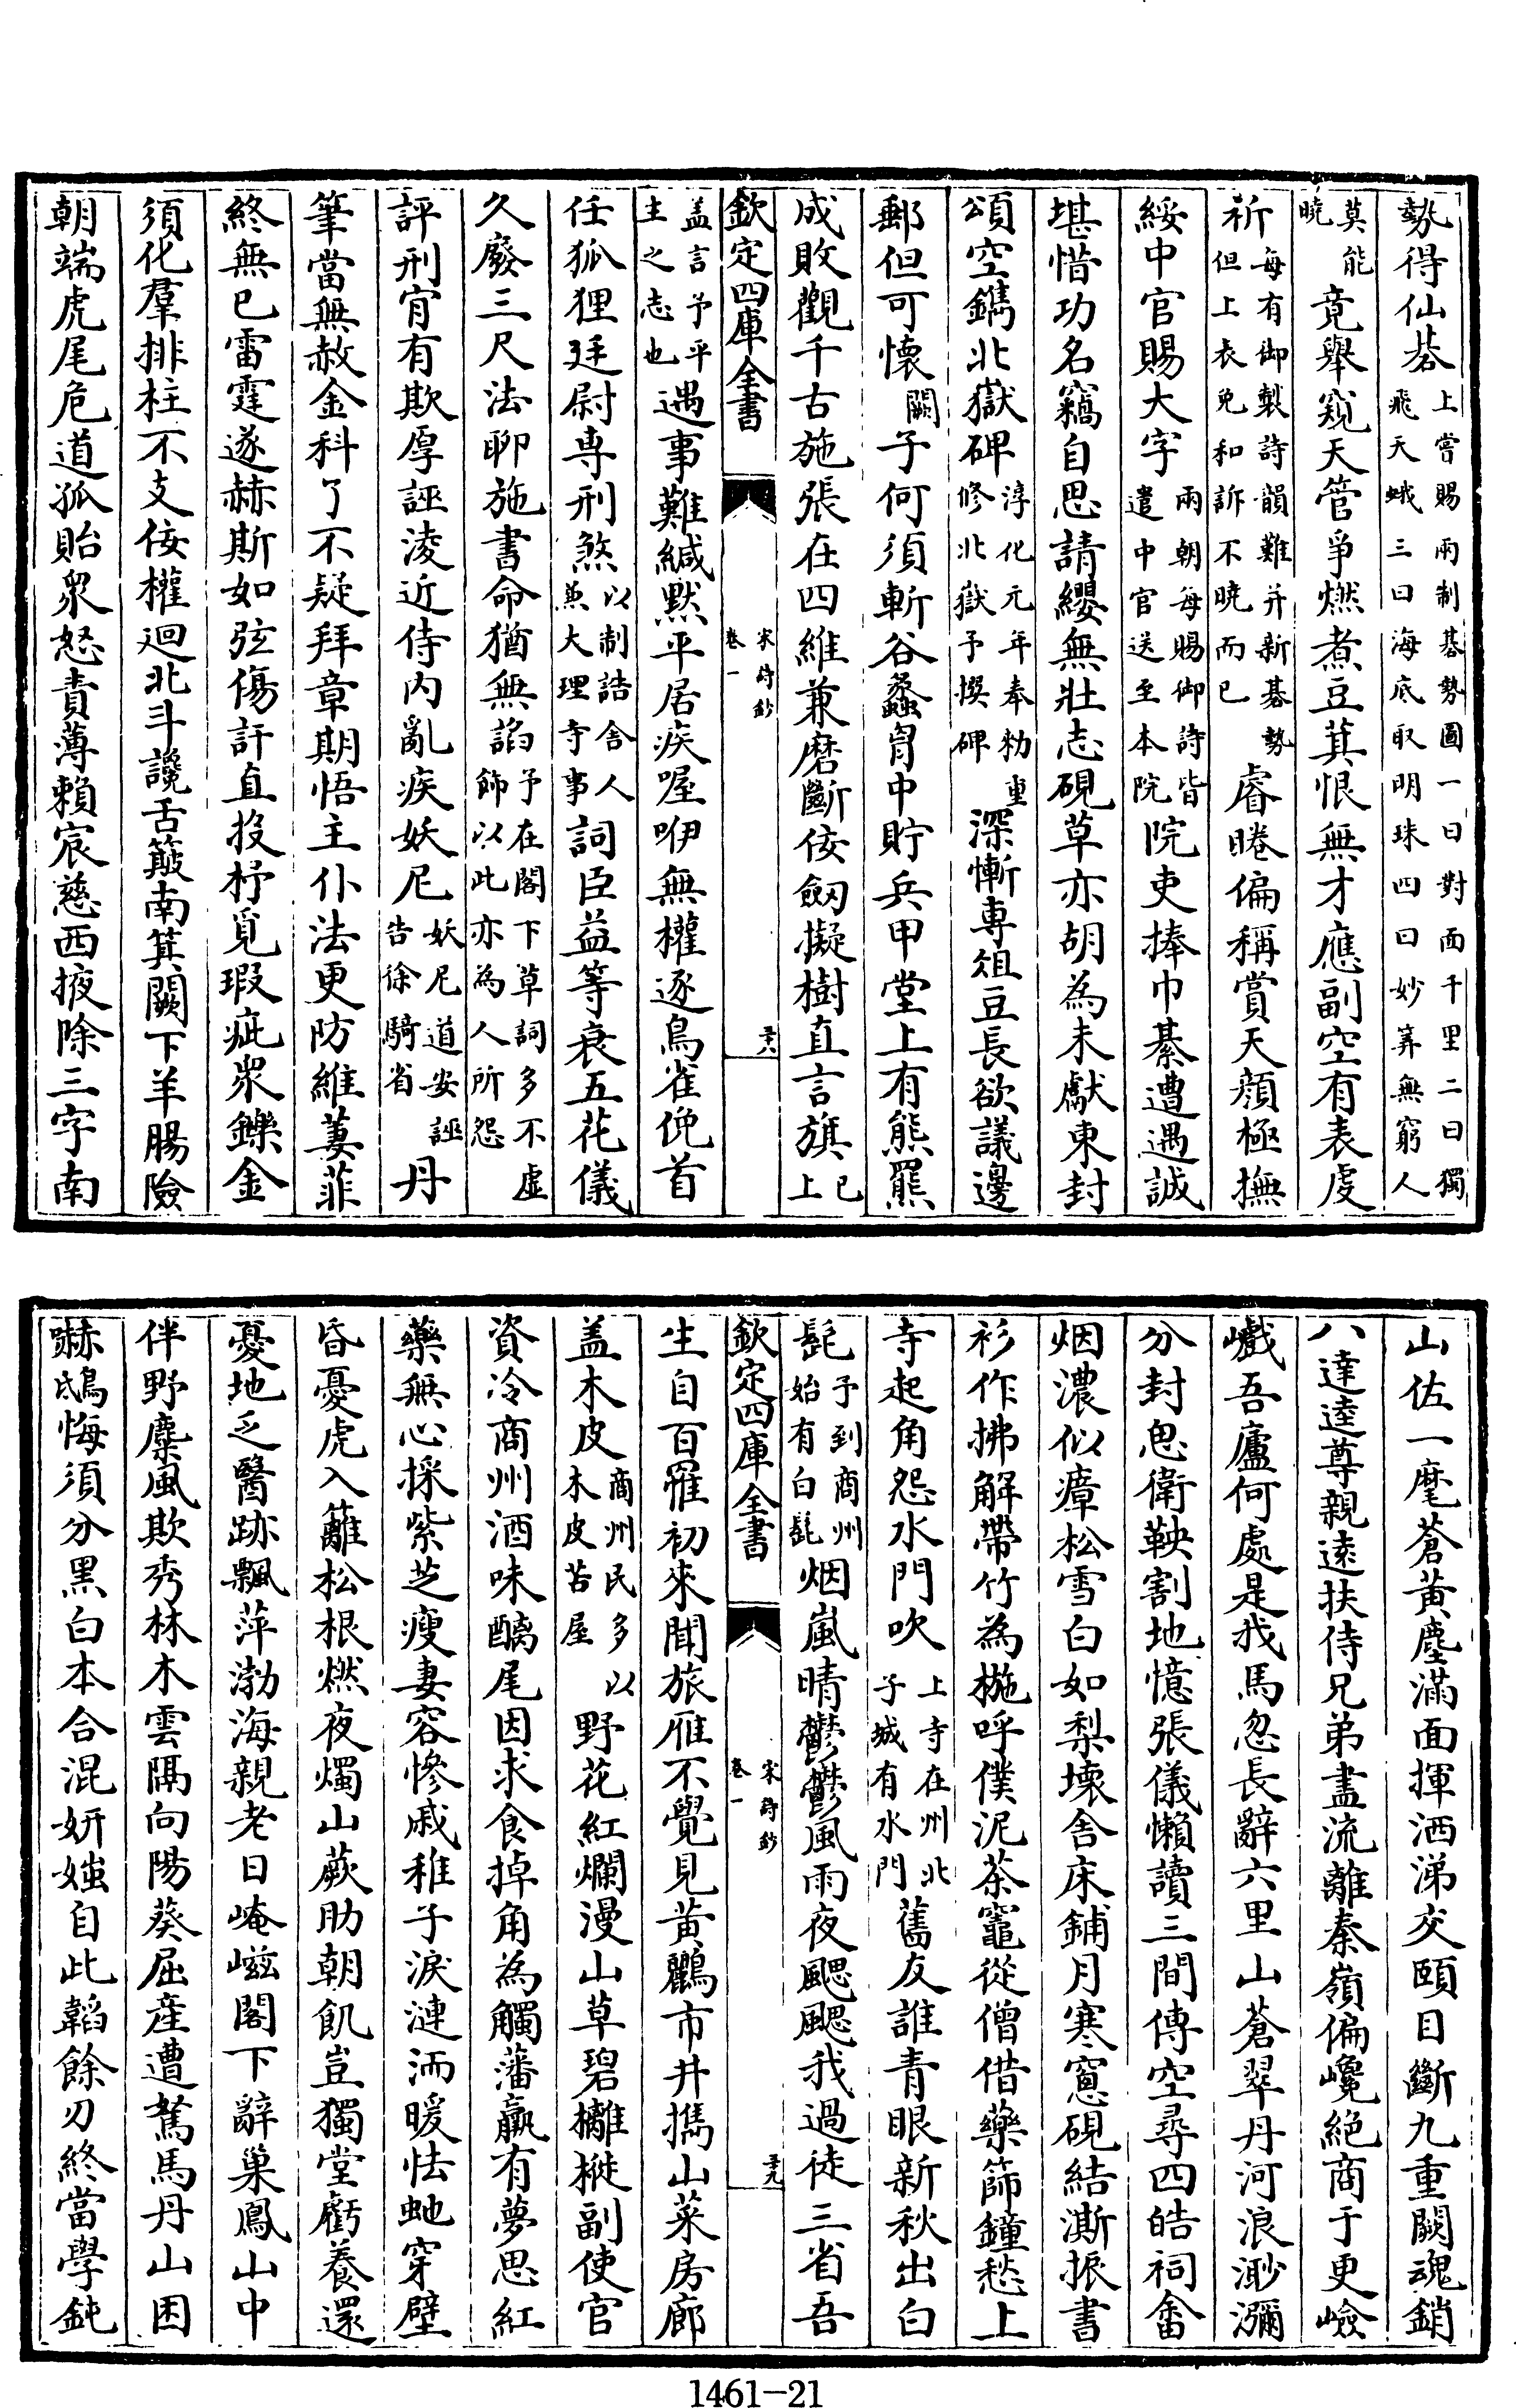 勢得仙碁上嘗賜兩制碁勢圖一曰對面千里二曰獨飛天蛾三曰海底取明珠四曰妙筭無窮人
莫能曉竟舉窺天管爭燃煮豆萁恨無才應副空有表虔
祈每有御製詩韻難并新碁勢但上表免和訴不曉而已睿睠偏稱賞天顔極撫
綏中官賜大字兩朝每賜御詩皆遣中官送至本院院吏捧巾綦遭遇誠
堪惜功名竊自思請纓無壯志硯草亦胡為未獻東封
頌空鐫北嶽碑淳化元年奉勑重修北嶽予撰碑深慚専俎豆長欲議邊
郵但可懷闕子何須斬谷蠡胷中貯兵甲堂上有熊羆
成敗觀千古施張在四維兼磨斷佞劒擬樹直言旗已上
欽定四庫全書
宋詩鈔
卷一
三十八
盖言予平主之志也遇事難緘默平居疾喔咿無權逐鳥雀俛首
任狐狸廷尉専刑煞以制誥舍人兼大理寺事詞臣益等衰五花儀
久廢三尺法聊施書命猶無謟予在閣下草詞多不虛飾以此亦為人所怨
評刑肎有欺厚誣淩近侍内亂疾妖尼妖尼道安誣告徐騎省丹
筆當無赦金科了不疑拜章期悟主仆法更防維萋菲
終無已雷霆遂赫斯如弦傷訐直投杼覓瑕疵衆鑠金
須化羣排柱不支佞權迴北斗讒舌簸南箕闕下羊腸險
朝端虎尾危道孤貽衆怒責薄賴宸慈西掖除三字南
山佐一麾蒼黄塵滿面揮洒涕交頤目斷九重闕魂銷
八達逵尊親遠扶侍兄弟盡流離秦嶺偏巉絶商于更嶮
巇吾廬何處是我馬忽長辭六里山蒼翠丹河浪渺瀰
分封思衛鞅割地憶張儀懶讀三閭傳空尋四皓祠畬
烟濃似瘴松雪白如梨壞舍床鋪月寒窻硯結澌振書
衫作拂解帶竹為椸呼僕泥茶竈從僧借藥篩鐘愁上
寺起角怨水門吹上寺在州北子城有水門舊友誰青眼新秋出白
髭予到商州始有白髭烟嵐晴鬱鬱風雨夜颸颸我過徒三省吾
欽定四庫全書
宋詩鈔
卷一
三十九
生自百罹初來聞旅雁不覺見黄鸝市井擕山菜房廊
盖木皮商州民多以木皮苫屋野花紅爛漫山草碧襹褷副使官
資冷商州酒味醨尾因求食掉角為觸藩羸有夢思紅
藥無心採紫芝瘦妻容慘戚稚子淚漣洏暖怯虵穿壁
昏憂虎入籬松根燃夜燭山蕨助朝飢豈獨堂虧養還
憂地乏醫跡飄萍渤海親老日崦嵫閣下辭巢鳳山中
伴野麋風欺秀林木雲隔向陽葵屈産遭駑馬丹山困
嚇鴟悔須分黒白本合混妍媸自此韜餘刃終當學鈍
1461—21